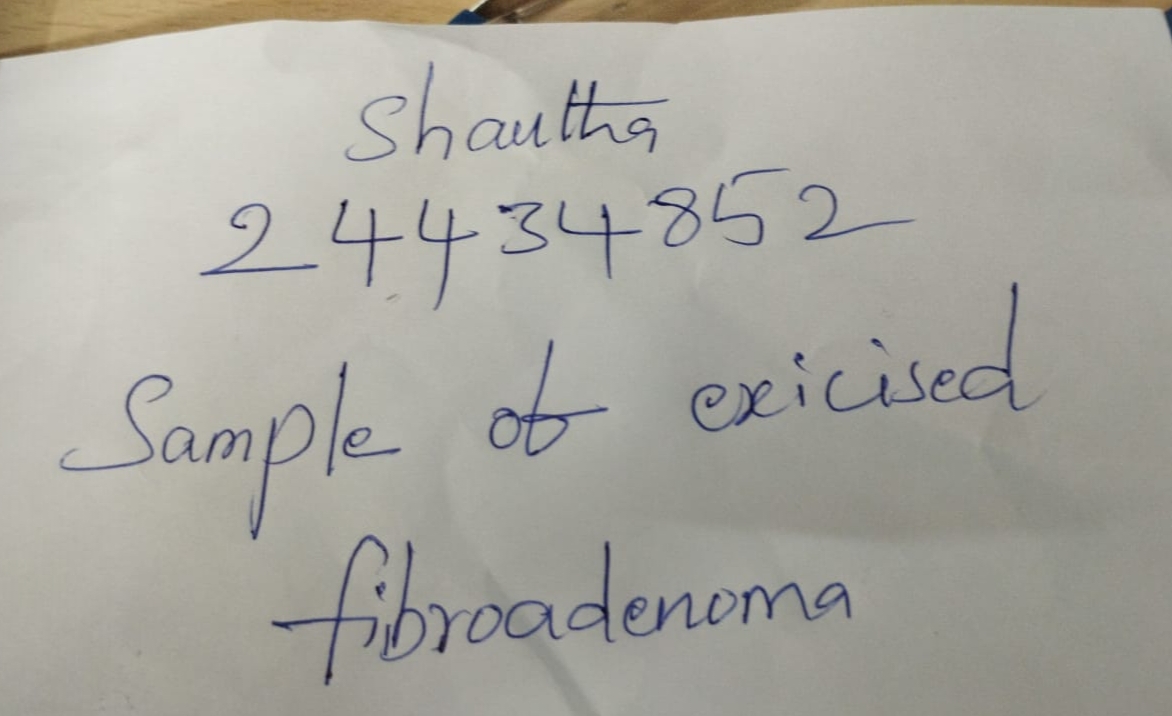 Shautha
24434852
Sample of exicised
fibroadenoma